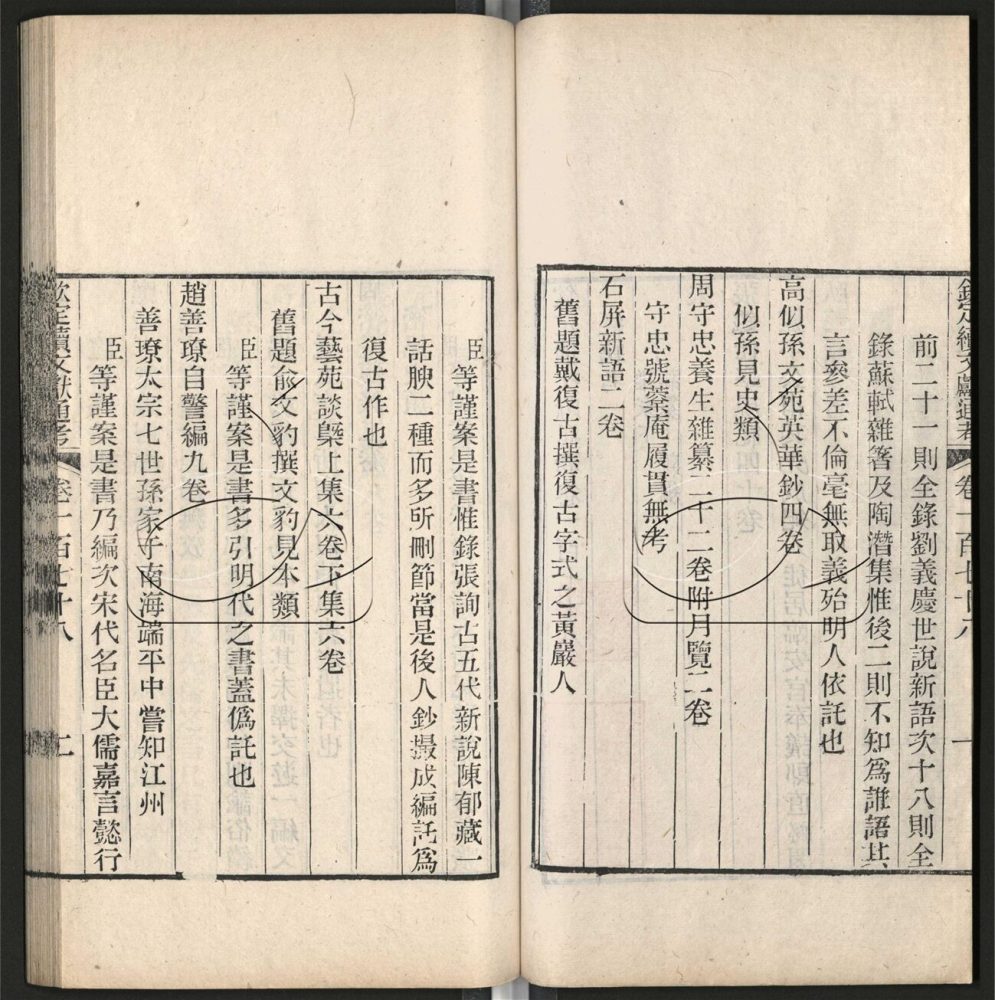 欽定續文獻通考 卷一百七十八 一
前二十一則全錄劉義慶世說新語次十八則全
錄蘇軾雜箸及陶潛集惟後二則不知爲誰語其
言參差不倫毫無取義殆明人依託也
高似孫文苑英華鈔四卷
似孫見史類
周守忠養生雜纂二十二卷附月覽二卷
守忠號蓁庵履貫無考
石屏新語二卷
舊題戴復古撰復古字式之黃巖人
臣等謹案是書惟錄張詢古五代新說陳郁藏一
話腴二種而多所刪節當是後人鈔撮成編託爲
復古作也
古今藝苑談槩上集六卷下集六卷
舊題俞文豹撰文豹見本類
臣等謹案是書多引明代之書蓋僞託也
趙善璙自警編九卷
善璙太宗七世孫家于南海端平中嘗知江州
臣等謹案是書乃編次宋代名臣大儒嘉言懿行
欽定續文獻通考 卷一百七十八 二